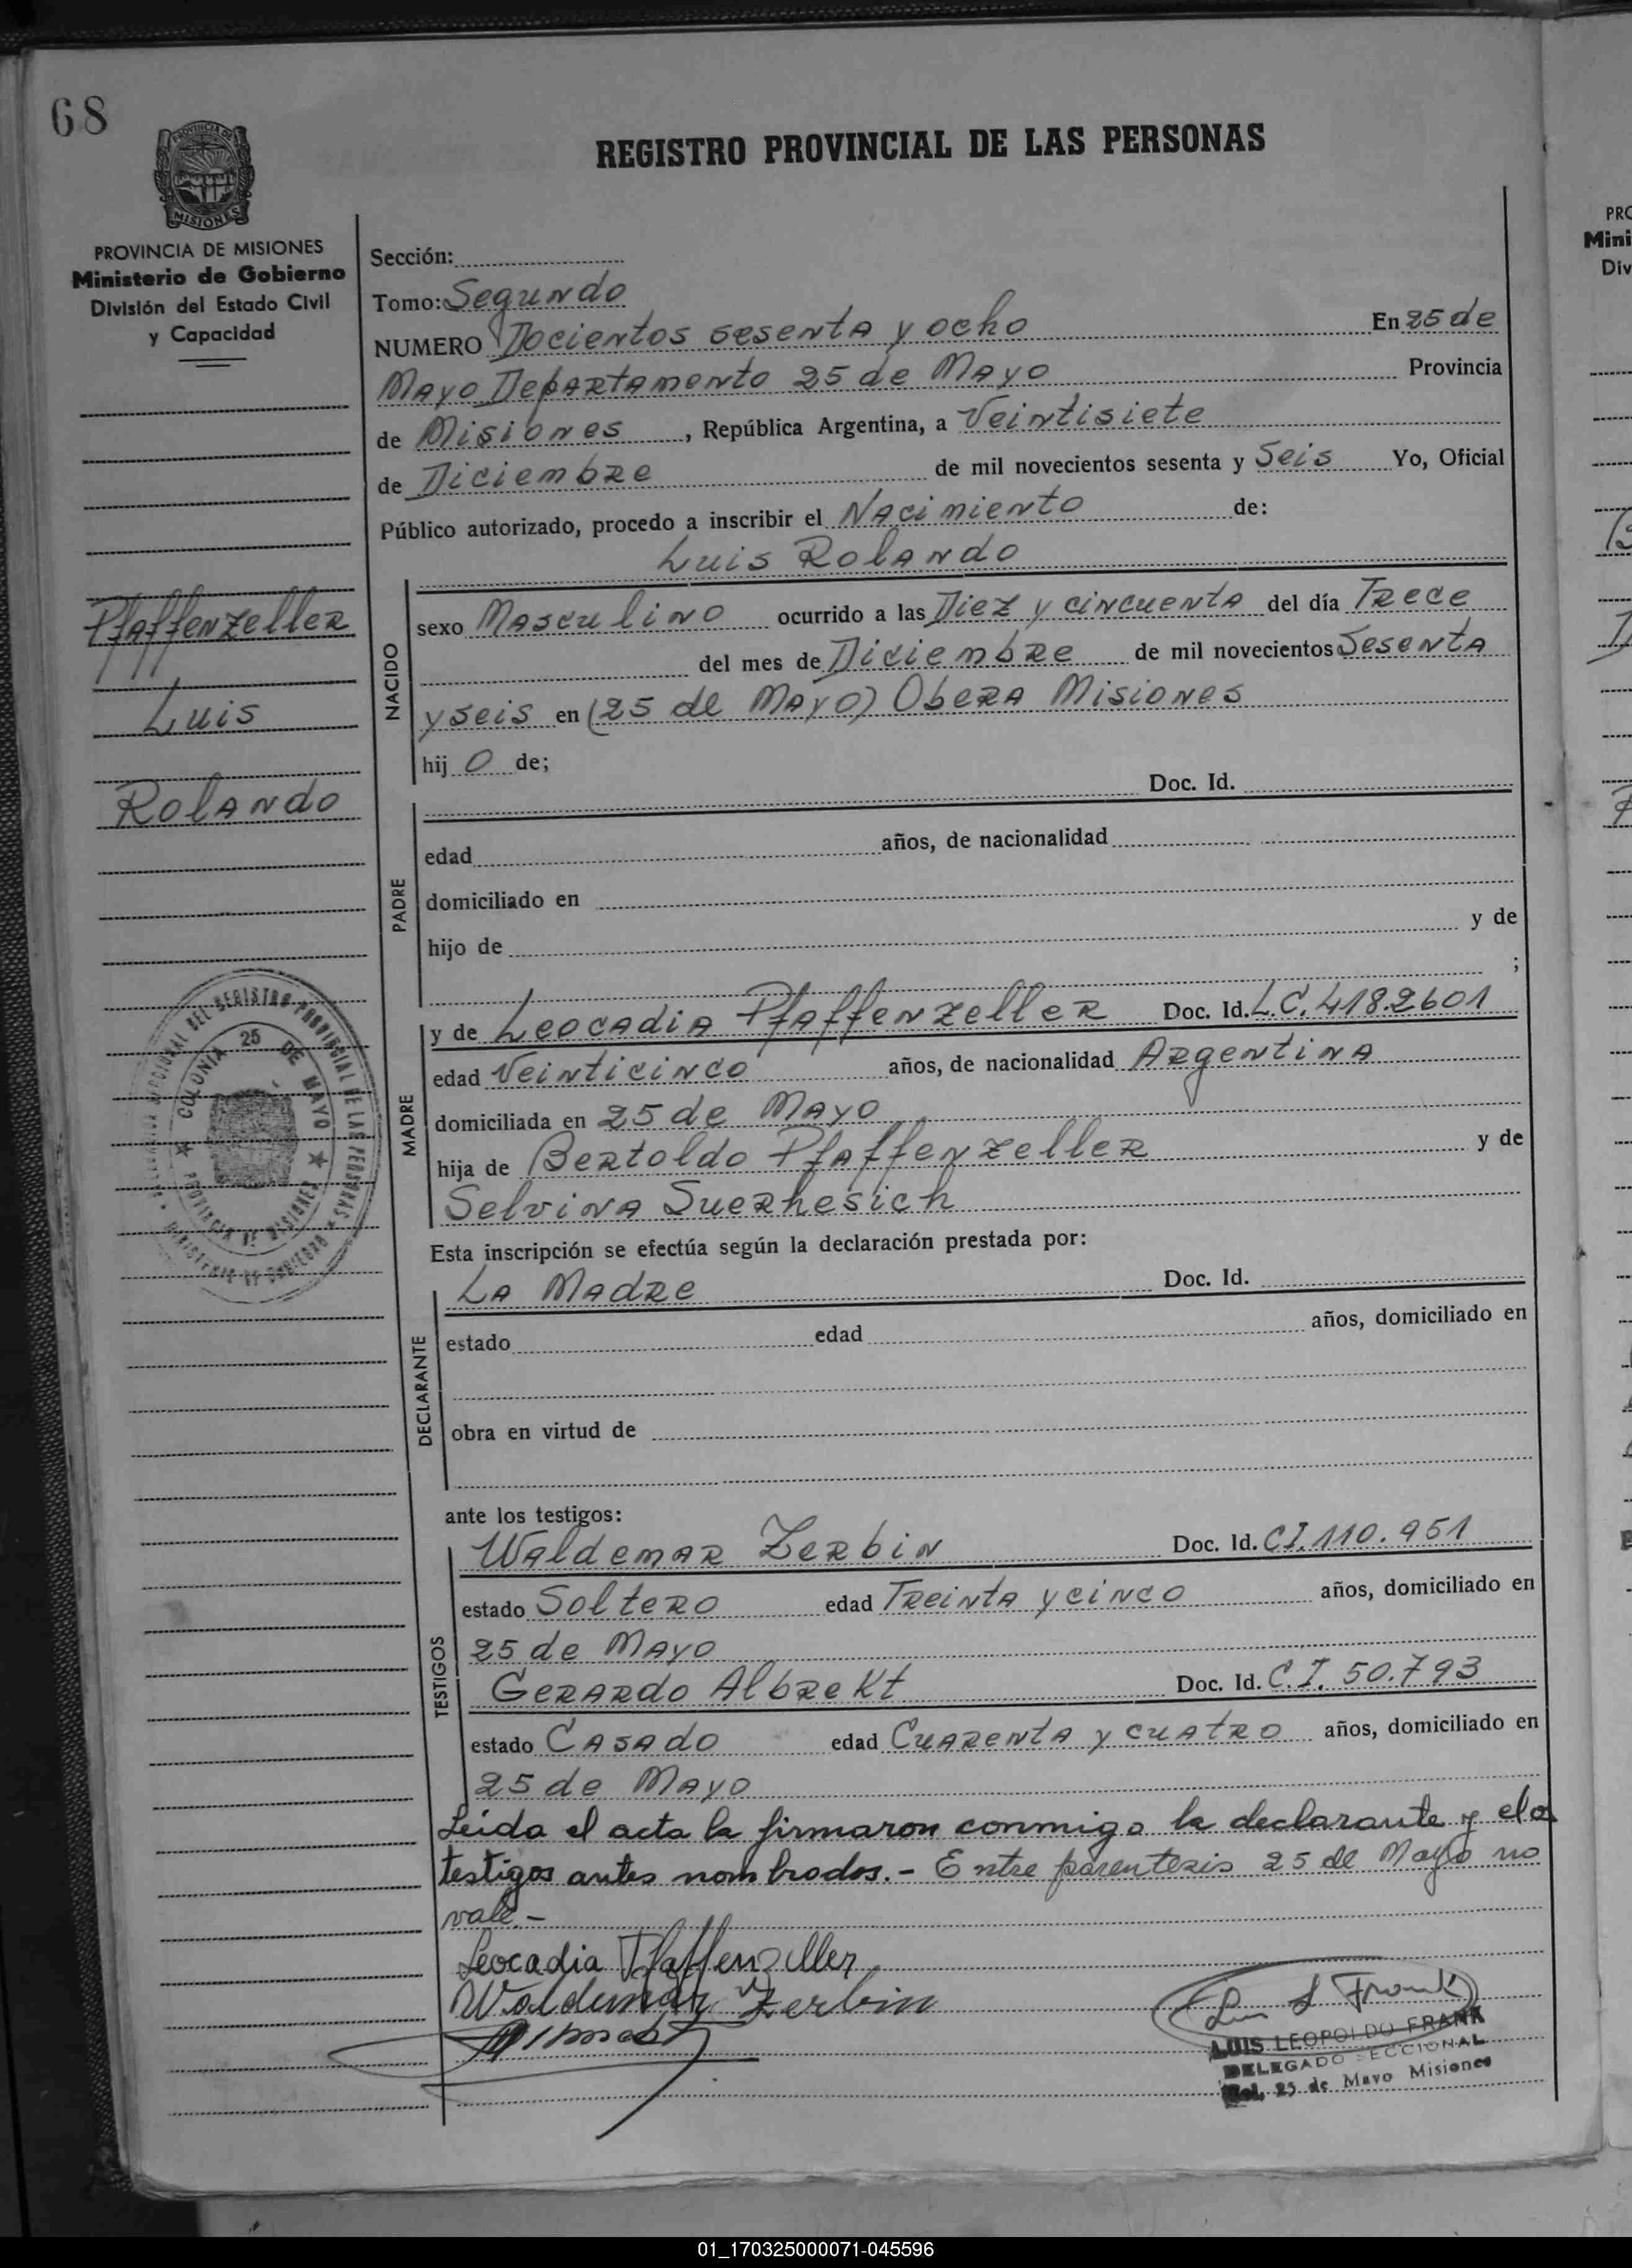 68
REGISTRO PROVINCIAL DE LAS PERSONAS
PROVINCIA DE MISIONES
Ministerio de Gobierno
División del Estado Civil
y Capacidad
Sección:
Tomo: Segundo
NUMERO Docientos sesenta y ocho En 25 de
Mayo Departamento 25 de Mayo Provincia
de Misiones, República Argentina, a Veintisiete
de Diciembre de mil novecientos sesenta y Seis Yo, Oficial
Público autorizado, procedo a inscribir el Nacimiento de:
Luis Rolando
Pfaffenzeller
Luis
Rolando
NACIDO
sexo Masculino ocurrido a las Diez y cincuenta del día Trece
del mes de Diciembre de mil novecientos Sesenta
y seis en (25 de Mayo) Obera Misiones
hij o de;
PADRE
Doc. Id.
edad años, de nacionalidad
domiciliado en
hijo de y de
;
MADRE
y de Leocadia Pfaffenzeller Doc. Id. L.C. 418.2601
edad Veinticinco años, de nacionalidad Argentina
domiciliada en 25 de Mayo
hija de Bertoldo Pfaffenzeller y de
Selvina Suerhesich
COLONIA 25 DE MAYO
PROVINCIA DE MISIONES
Esta inscripción se efectúa según la declaración prestada por:
DECLARANTE
La Madre Doc. Id.
estado edad años, domiciliado en
obra en virtud de
ante los testigos:
TESTIGOS
Waldemar Zerbin Doc. Id. CI. 110.951
estado Soltero edad Treinta y cinco años, domiciliado en
25 de Mayo
Gerardo Albrekt Doc. Id. C.I. 50.793
estado Casado edad Cuarenta y cuatro años, domiciliado en
25 de Mayo
Leida el acta la firmaron conmigo la declarante y
testigos antes nombrados.- Entre parentesis 25 de Mayo no
vale.-
Leocadia Pfaffenzeller
Waldemar Zerbin
Luis L Frank
LUIS LEOPOLDO FRANK
DELEGADO SECCIONAL
Col. 25 de Mayo Misiones
01_170325000071-045596